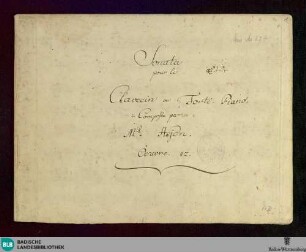 Sonata
pour le
Clavecin ou Forte Piano.
Composée par
Mr. Haydn.
Oeuvre
BLB BADISCHE
LANDESBIBLIOTHEK